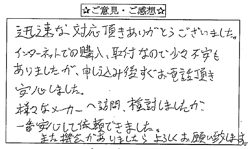 ☆ご意見・ご感想☆
迅速な対応頂きありがとうございました。
インターネットでの購入、取付なので少々不安も
ありましたが、申し込み後すぐお電話頂き
安心しました。
様々なメーカーへ訪問、検討しましたが
一番安心して依頼できました。
また機会がありましたらよろしくお願い致します